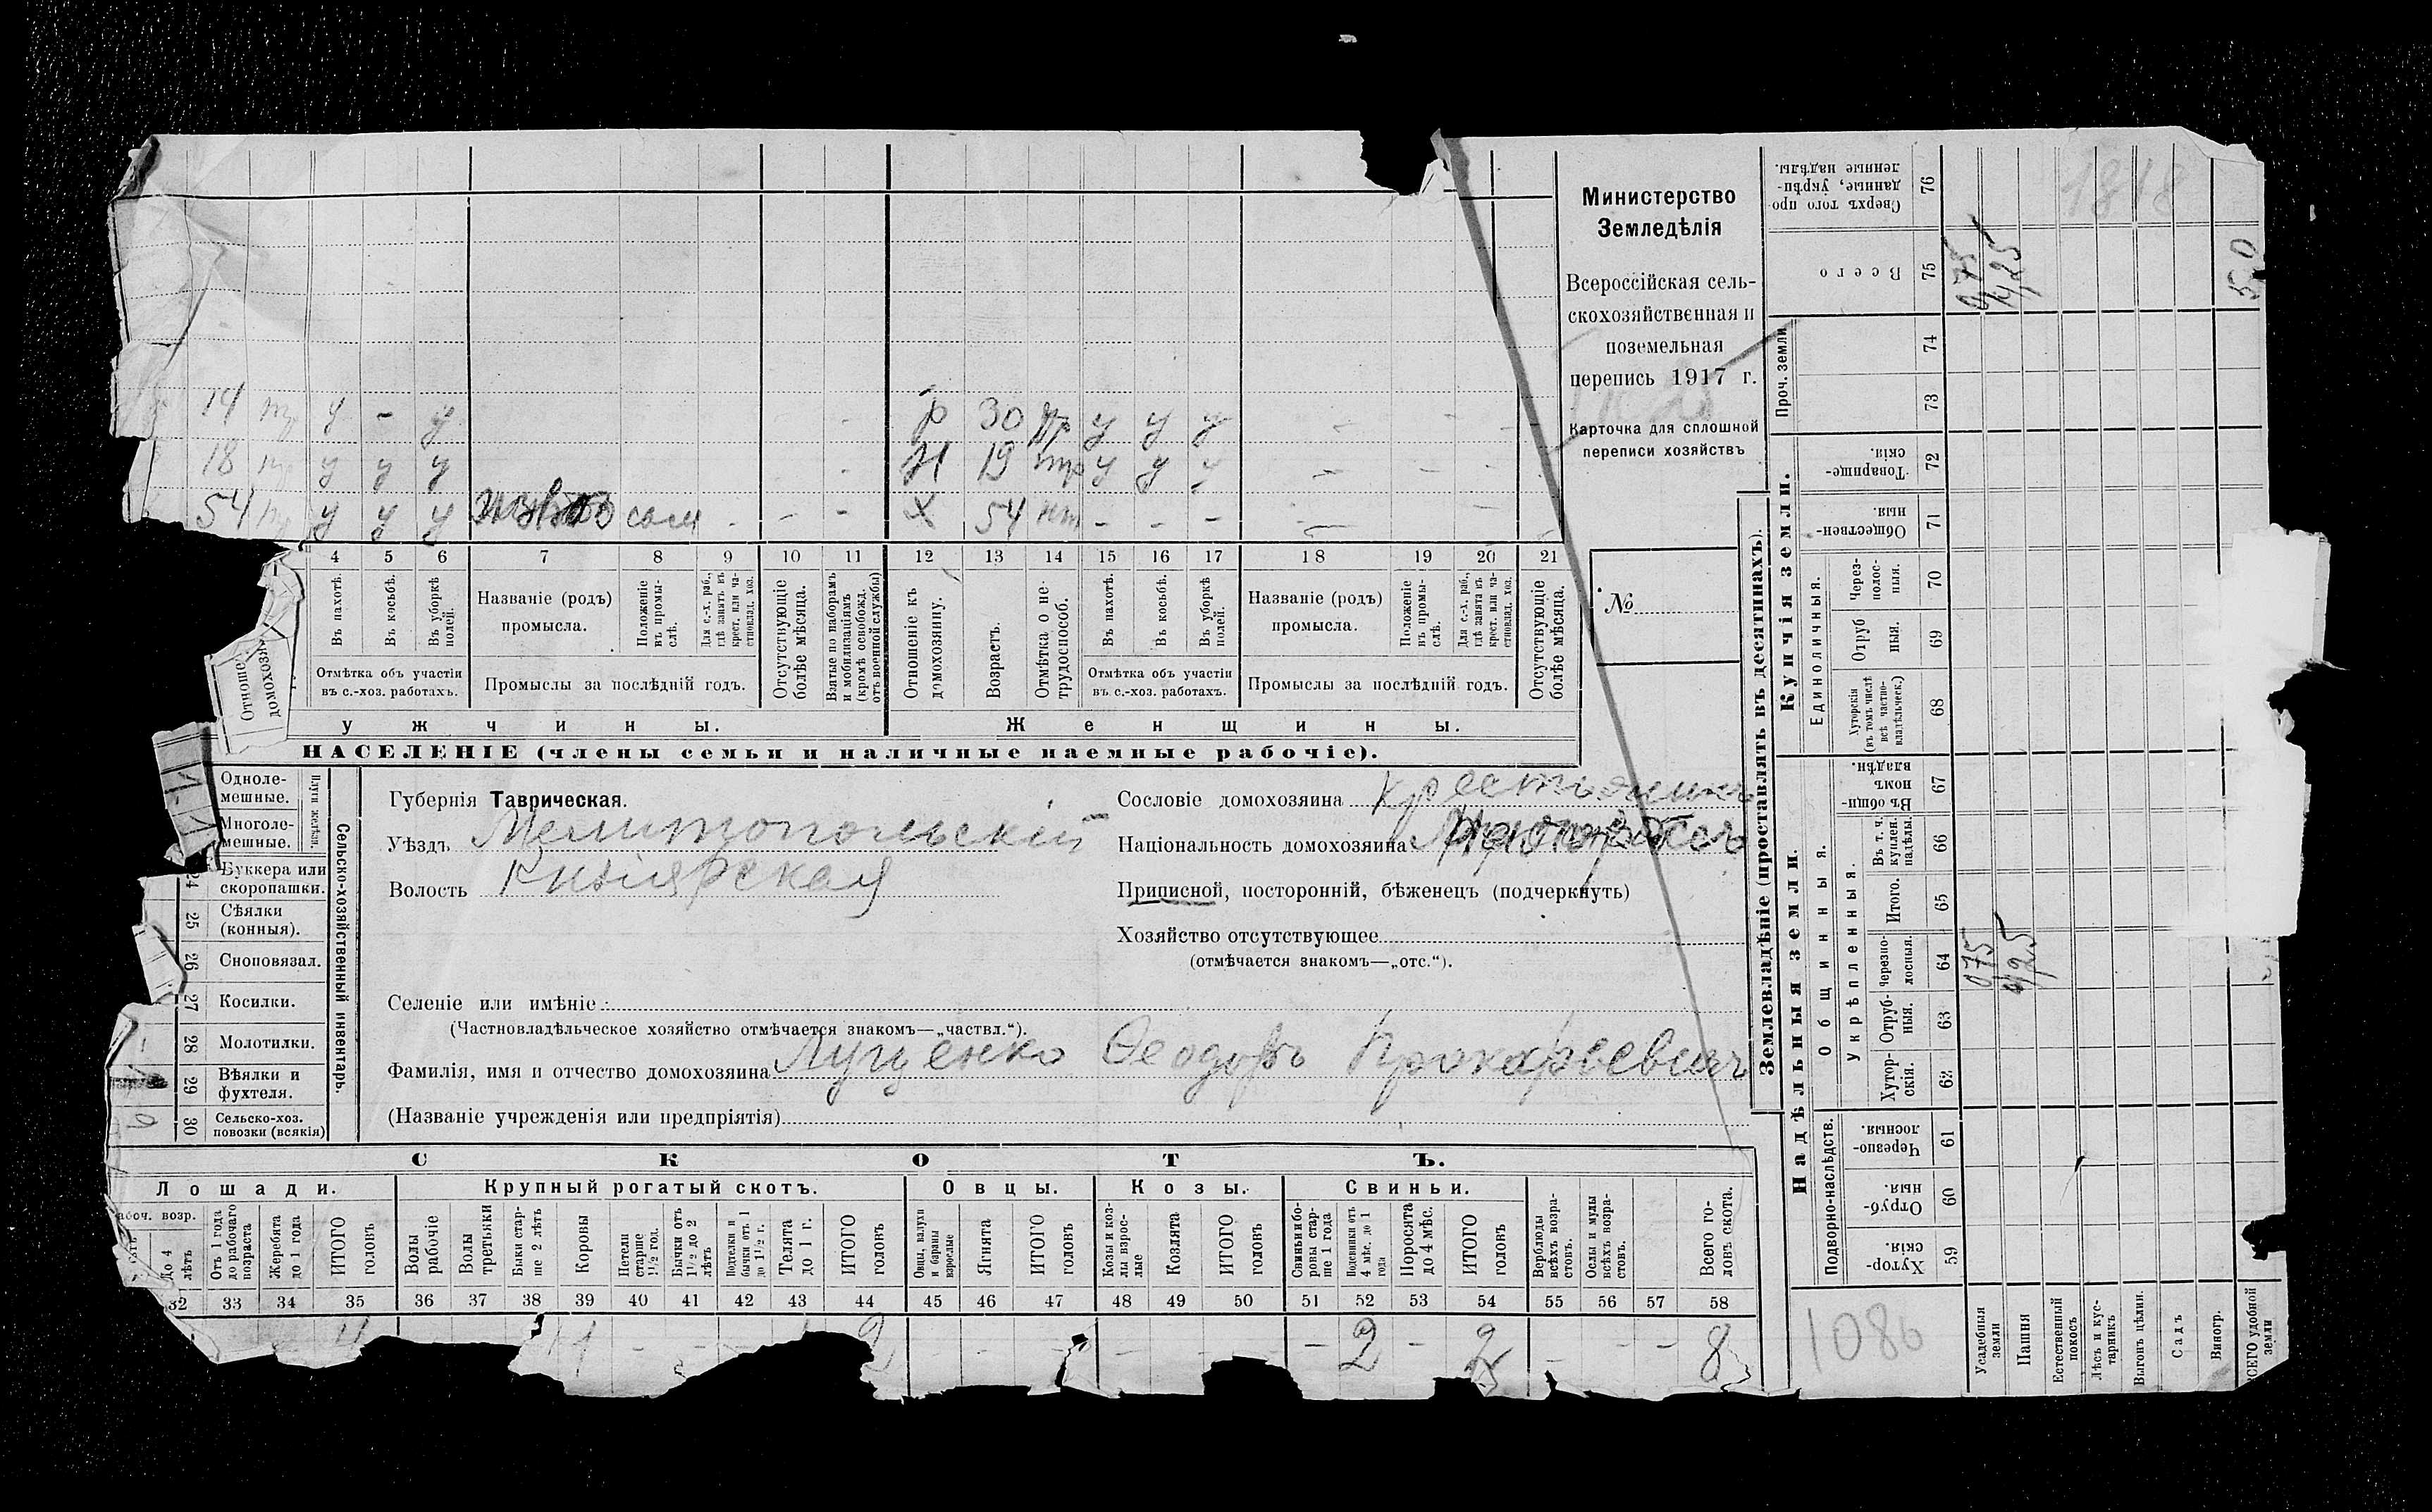 14 у - у р 30 у у у
18 у у у Н 19 у у у
54 у у у сам - - - х 54 - - -
4 5 6 7 8 9 10 11 12 13 14 15 16 17 18 19 20 21
Въ пахотѣ.
Въ косьбѣ.
Въ уборкѣ полей.
Названіе (родъ) промысла.
Положеніе въ промыслѣ.
Для с.-х. раб., гдѣ занятъ въ крест. или частновлад. хоз.
Отсутствующіе болѣе мѣсяца.
Взятые по наборамъ и мобилизаціямъ (кромѣ освобожд. отъ военной службы)
Отношеніе къ домохозяину.
Возрастъ.
Отмѣтка о нетрудоспособ.
Въ пахотѣ.
Въ косьбѣ.
Въ уборкѣ полей.
Названіе (родъ) промысла.
Положеніе въ промыслѣ.
Для с.-х. раб., гдѣ занята въ крест. или частновлад. хоз.
Отсутствующіе болѣе мѣсяца.
Отмѣтка объ участіи въ с.-хоз. работахъ.
Промыслы за послѣдній годъ.
Отмѣтка объ участіи въ с.-хоз. работахъ.
Промыслы за послѣдній годъ.
у ж ч и н ы.
Ж е н щ и н ы.
НАСЕЛЕНІЕ (члены семьи и наличные наемные рабочіе).
Министерство
Земледѣлія
Всероссійская сель-
скохозяйственная и
поземельная
перепись 1917 г.
Карточка для сплошной
переписи хозяйствъ
№
Губернія Таврическая.
Уѣздъ Мелитопольскій
Волость
Сословіе домохозяина Крестьянинъ
Національность домохозяина
Приписной, посторонній, бѣженецъ (подчеркнуть)
Хозяйство отсутствующее
(отмѣчается знакомъ—„отс.“).
Селеніе или имѣніе:
(Частновладѣльческое хозяйство отмѣчается знакомъ—„частвл.“).
Фамилія, имя и отчество домохозяина Луценко Ѳеодоръ Прокофьевичъ
(Названіе учрежденія или предпріятія)
Сельско-хозяйственный инвентарь.
Плуги желѣзн.
Одноле-
мешные.
Многоле-
мешные.
24 Буккера или
скоропашки.
25 Сѣялки
(конныя).
26 Сноповязал.
27 Косилки.
28 Молотилки.
29 Вѣялки и
фухтеля.
30 Сельско-хоз.
повозки (всякія)
С К О Т Ъ.
Лошади.
Крупный рогатый скотъ.
Овцы.
Козы.
Свиньи.
До 4 лѣтъ
Отъ 1 года до рабочаго возраста
Жеребята до 1 года
ИТОГО головъ
Волы рабочіе
Волы третьяки
Быки старше 2 лѣтъ
Коровы
Нетели старше 1½ год.
Бычки отъ 1½ до 2 лѣтъ
Подтелки и бычки отъ 1 до 1½ г.
Телята до 1 г.
ИТОГО головъ
Овцы, валухи и бараны взрослые
Ягнята
ИТОГО головъ
Козы и козлы взрослые
Козлята
ИТОГО головъ
Свиньи и боровы старше 1 года
Подсвинки отъ 4 мѣс. до 1 года
Поросята до 4 мѣс.
ИТОГО головъ
Верблюды всѣхъ возрастовъ.
Ослы и мулы всѣхъ возрастовъ.
Всего головъ скота.
32 33 34 35 36 37 38 39 40 41 42 43 44 45 46 47 48 49 50 51 52 53 54 55 56 57 58
4 1 2 - 2 - 2 8
Землевладѣніе (проставлять въ десятинахъ).
Купчія земли.
Надѣльныя земли.
Сверхъ того проданные, укрѣпленные надѣлы. 76
Всего 75 0,75 4,25 5,0
Проч. земли
74
73
Товарищескія. 72
Общественныя. 71
Единоличныя.
Черезполосныя. 70
Отрубныя. 69
Хуторскія (въ томъ числѣ всѣ частновладѣльческ.) 68
Общинныя.
Въ общинномъ владѣн. 67
Укрѣпленныя.
Въ т. ч. куплен. надѣлы. 66
Итого. 65
Черезполосныя. 64 0,75 4,25
Отрубныя. 63
Хуторскія. 62
Подворно-наслѣдств.
Черезполосныя. 61
Отрубныя. 60
Хуторскія. 59
Усадебныя земли
Пашня
Естественный покосъ
Лѣсъ и кустарникъ
Выгонъ цѣлин.
Садъ
Виногр.
ВСЕГО удобной земли
1818